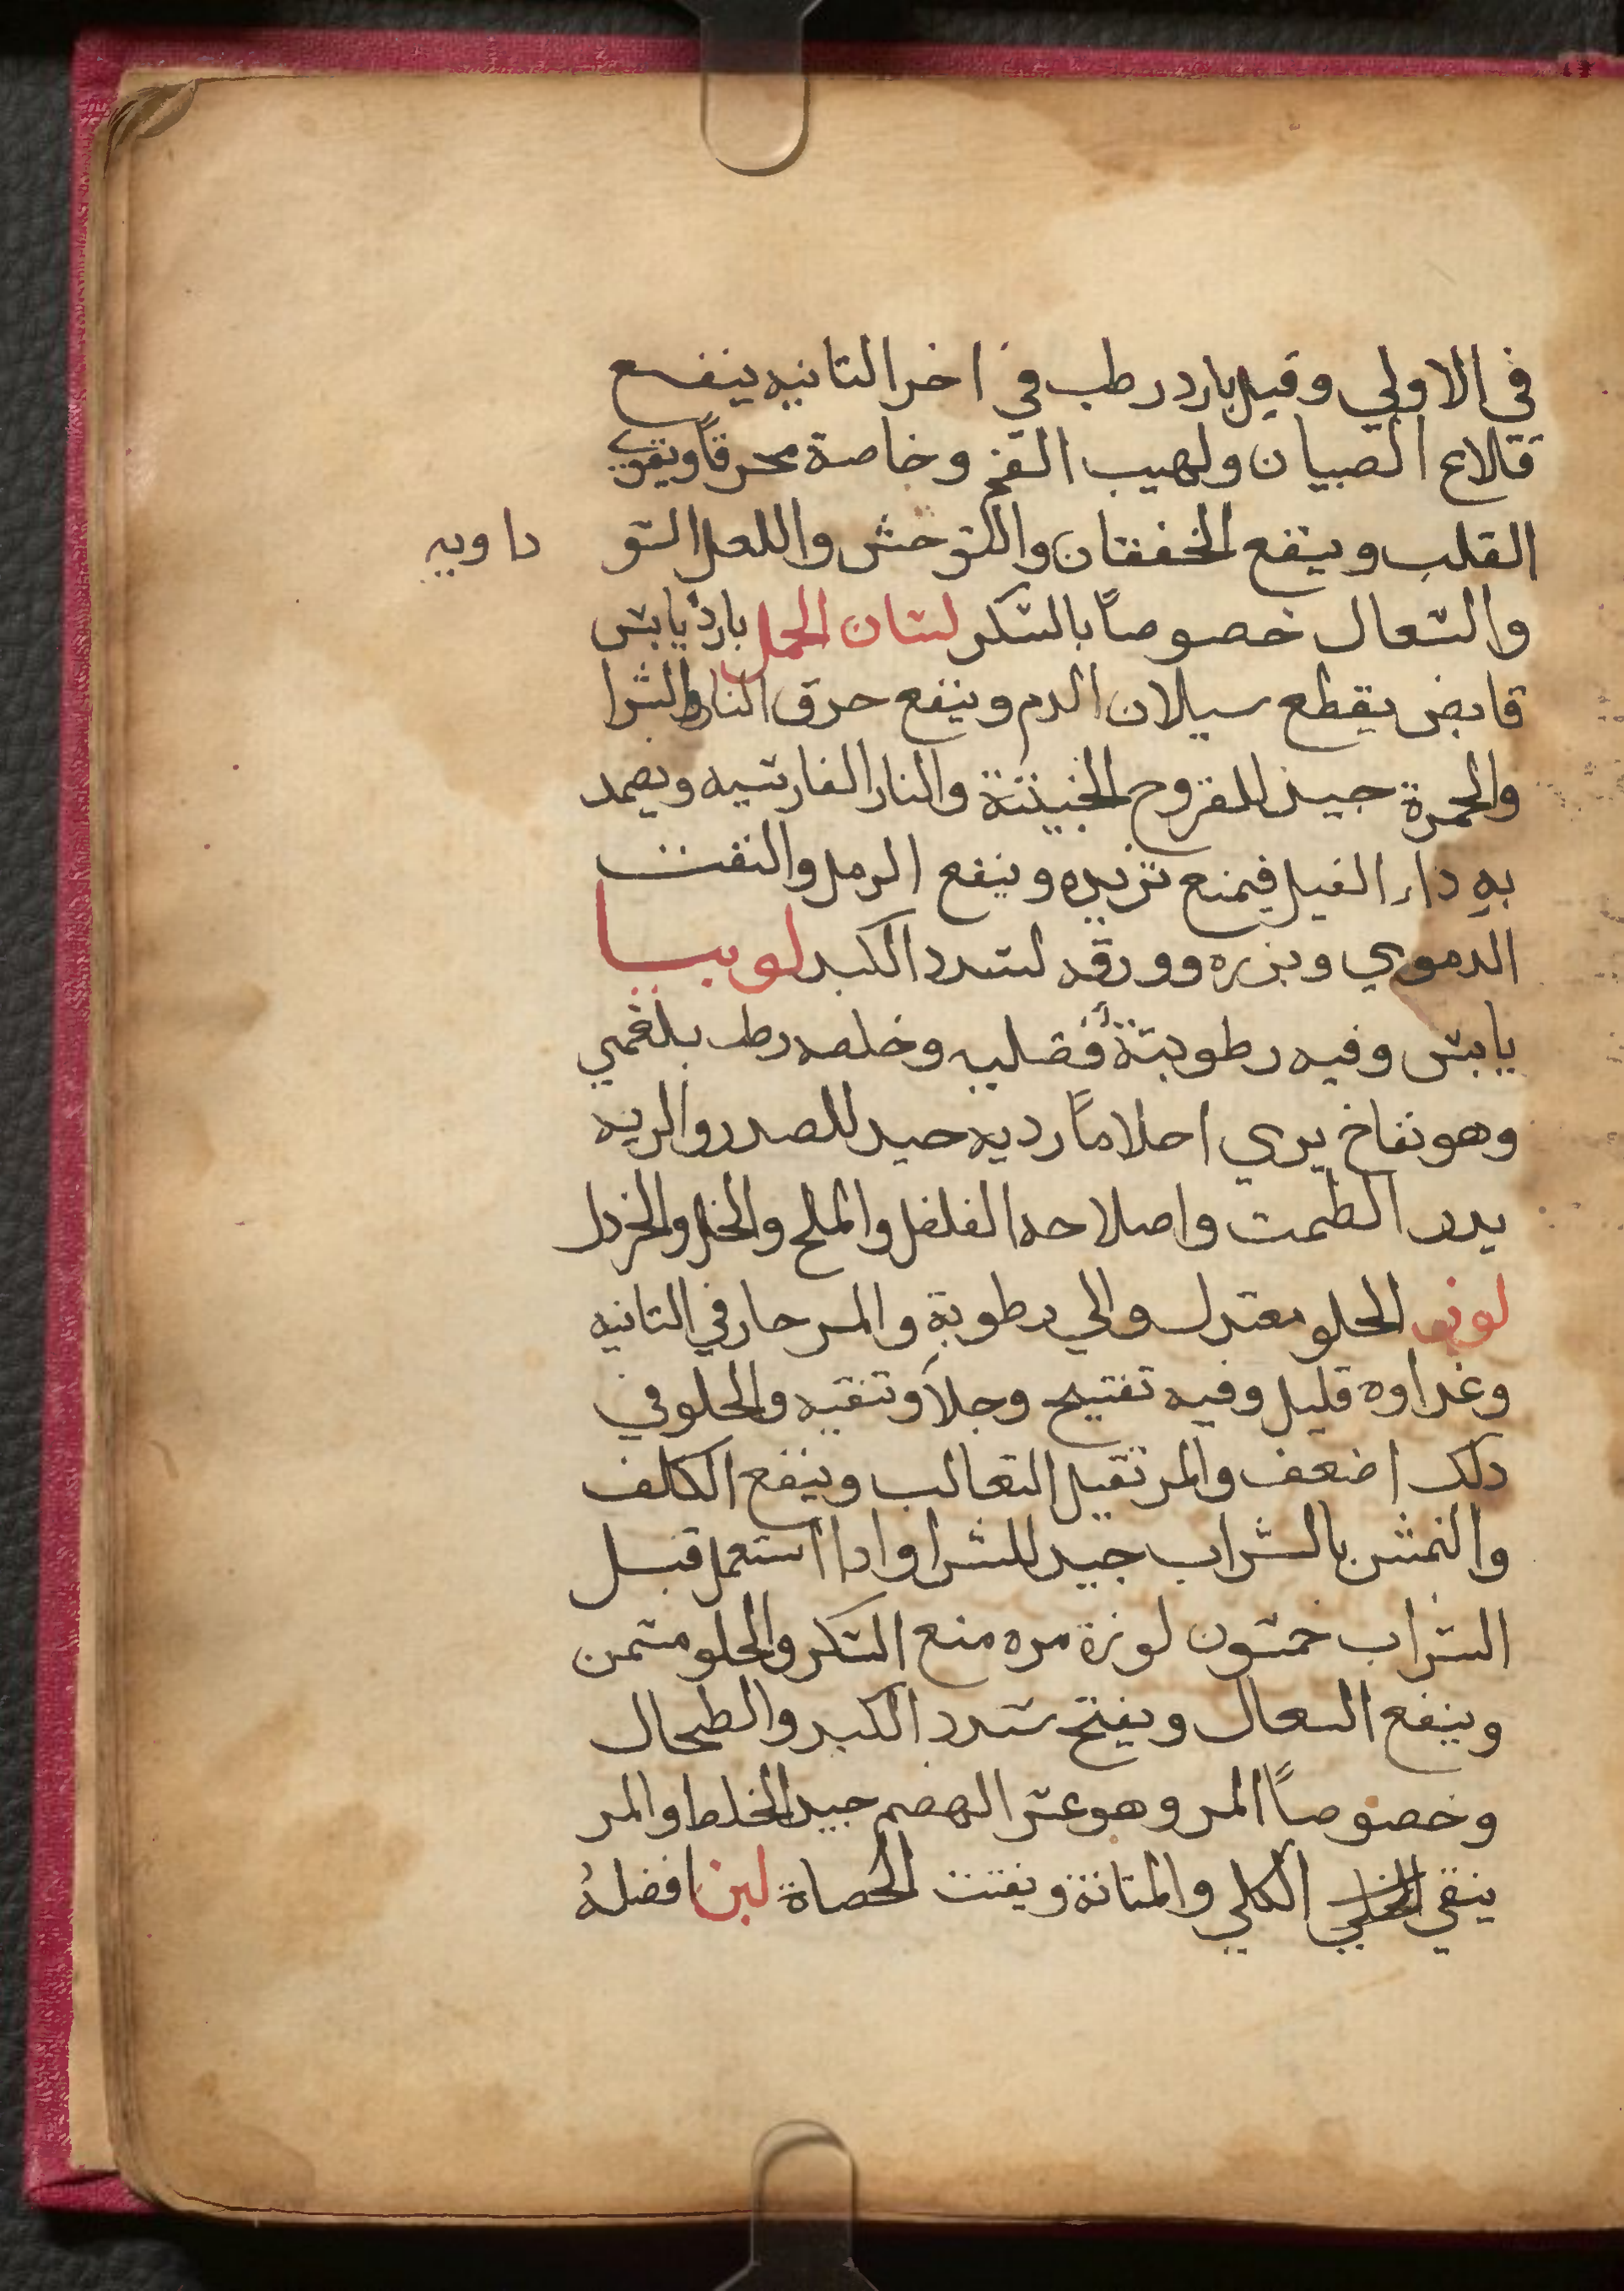 في الاولي وقيل بارد رطب في اخر التانيه ينفع
قلاع الصبيان ولهيب الفم وخاصة محرقاً ويقوي
القلب وينفع الخفقان والتوحش والعلل السو
داويه
والسعال خصوصاً بالسكر لسان الحمل بارد يابس
قابض يقطع سيلان الدم وينفع حرق النار والشرا
والحمرة جيد للقروح الخبيثة والنار الفارسيه ويضمد
به داء الفيل فيمنع تزيده وينفع الرمل والنفث
الدموي وبزره وورقه لسدد الكبد لوبيا
يابس وفيه رطوبة فضليه وخلطه رطب بلغمي
وهو نفاخ يري احلاماً رديه جيد للصدر والريه
يدر الطمت واصلاحه الفلفل والملح والخل والخردل
لوز الحلو معتدل والي رطوبة والمر حار في التانيه
وغداوه قليل وفيه تفتيح وجلآ وتنقيه والحلو في
دلك اضعف والمر تقيل التعالب وينفع الكلف
والنمش بالشراب جيد للشرا وادا استعمل قبل
الشراب خمسون لوزة مره منع السكر والحلو مسمن
وينفع السعال ويفتح سدد الكبد والطحال
وخصوصاً المر وهو عسر الهضم جيد الخلط والمر
ينقي الكلي والمتانة ويفتت الحصاة لبن افضله